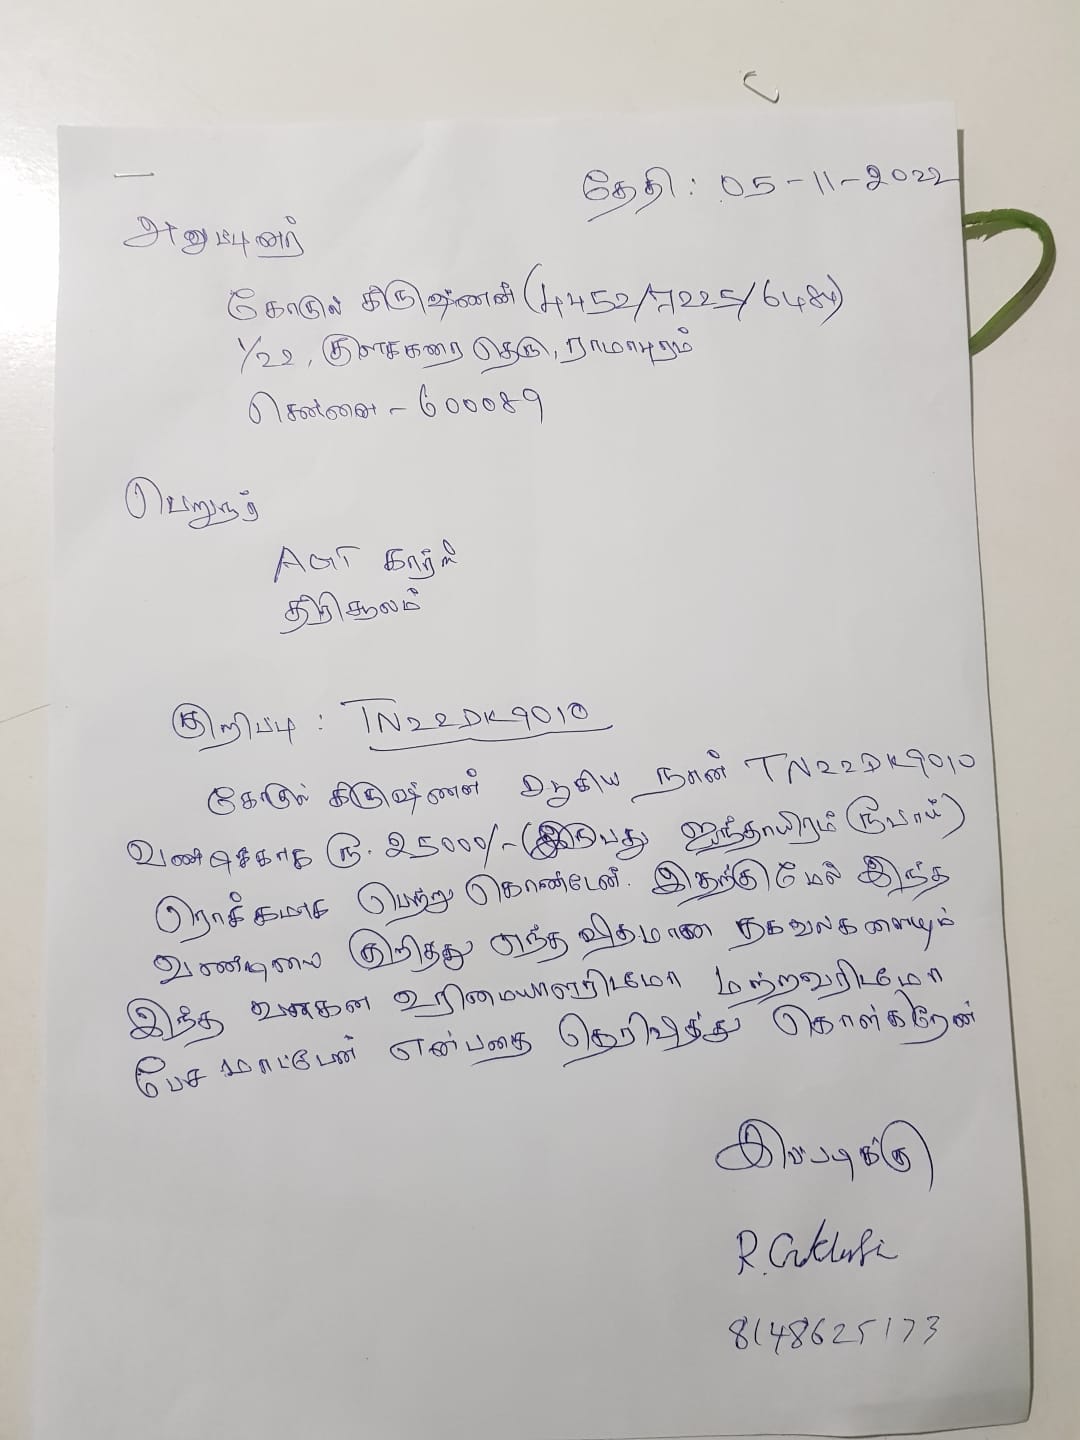 தேதி : 05-11-2022
அனுப்புனர்
கோகுல் கிருஷ்ணன் (4452/7225/6484)
1/22, குளக்கரை தெரு, ராமாபுரம்
சென்னை - 600089
பெறுநர்
AGT கார்ஸ்
திரிசூலம்
குறிப்பு : TN22DK9010
கோகுல் கிருஷ்ணன் ஆகிய நான் TN22DK9010
வண்டிக்காக ரூ. 25000/- (இருபது ஐந்தாயிரம் ரூபாய்)
ரொக்கமாக பெற்று கொண்டேன். இதற்கு மேல் இந்த
வண்டியை குறித்து எந்த விதமான தகவல்களையும்
இந்த வாகன உரிமையாளரிடமோ மற்றவரிடமோ
பேச மாட்டேன் என்பதை தெரிவித்து கொள்கிறேன்
இப்படிக்கு
8148625173